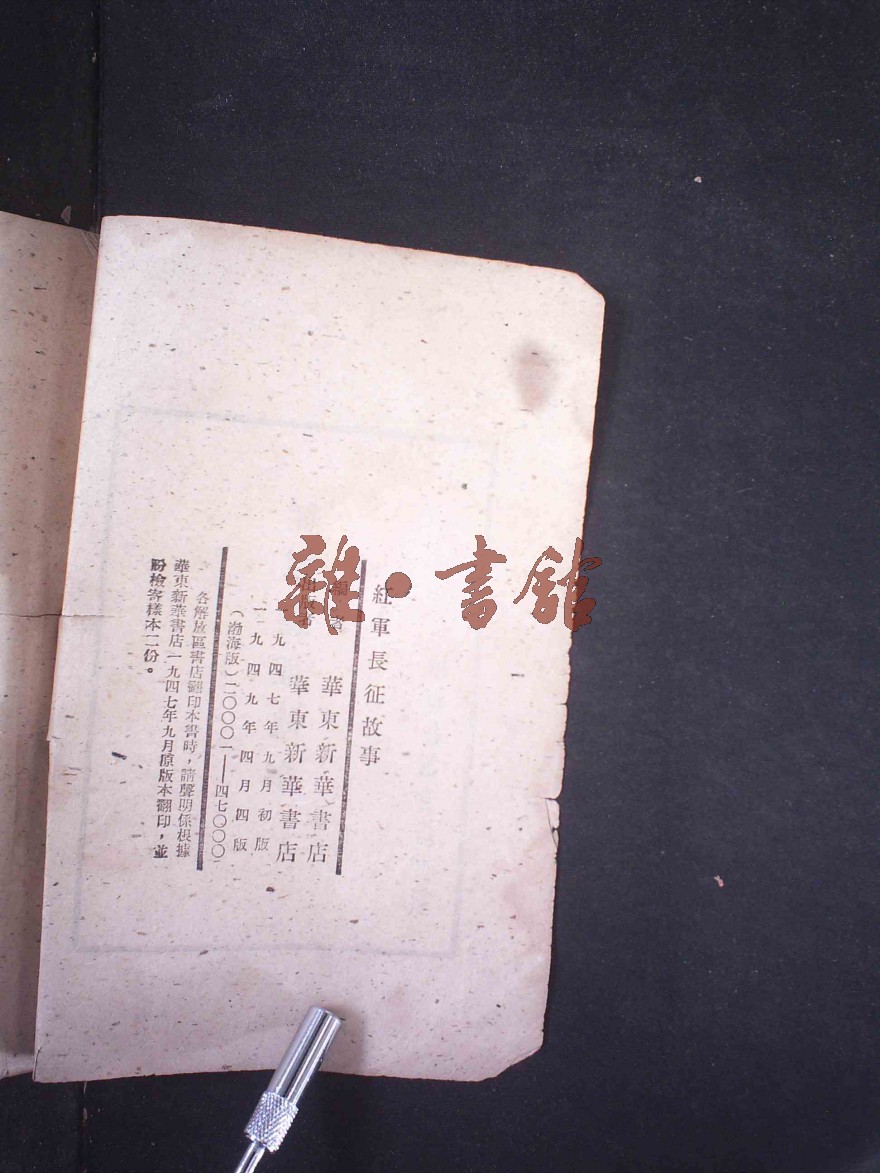 紅軍長征故事
編者 華東新華書店
出版者 華東新華書店
一九四七年九月初版
一九四九年四月四版
（渤海版）二〇〇〇一——四七〇〇〇
各解放區書店翻印本書時，請聲明係根據
華東新華書店一九四七年九月原版本翻印，並
盼檢寄樣本二份。
雜·書館